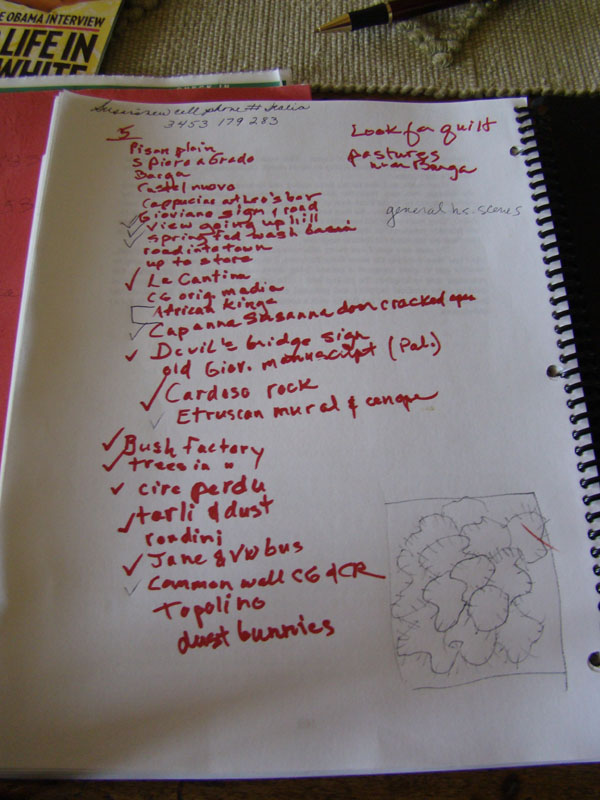 E OBAMA INTERVIEW
LIFE IN
WHITE
new cell phone # Italia
3453 179 283
5
Look for quilt
pastures
near Barga
general hs. scenes
Pisan plain
S Piero a Grado
Barga
Castelnuovo
cappucino at bar
Gioviano sign & road
view going up hill
spring fed wash basin
road into town
up to store
La Cantina
CG orig. madia
African Kings
Capanna Susanna door cracked open
Devil's bridge sign
old Giov. manuscript (Pal.)
Cardoso rock
Etruscan mural & canope
Bush factory
trees in "
cire perdu
tarli & dust
rondini
Jane & VW bus
Common wall CG & CR
Topolino
dust bunnies